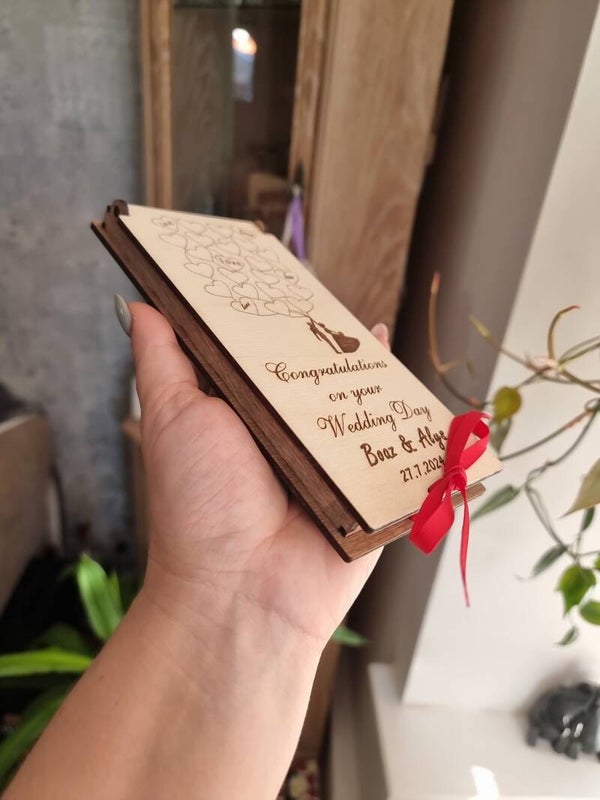 Love
Congratulations
on your
Wedding Day
Boaz &
27.7.2024